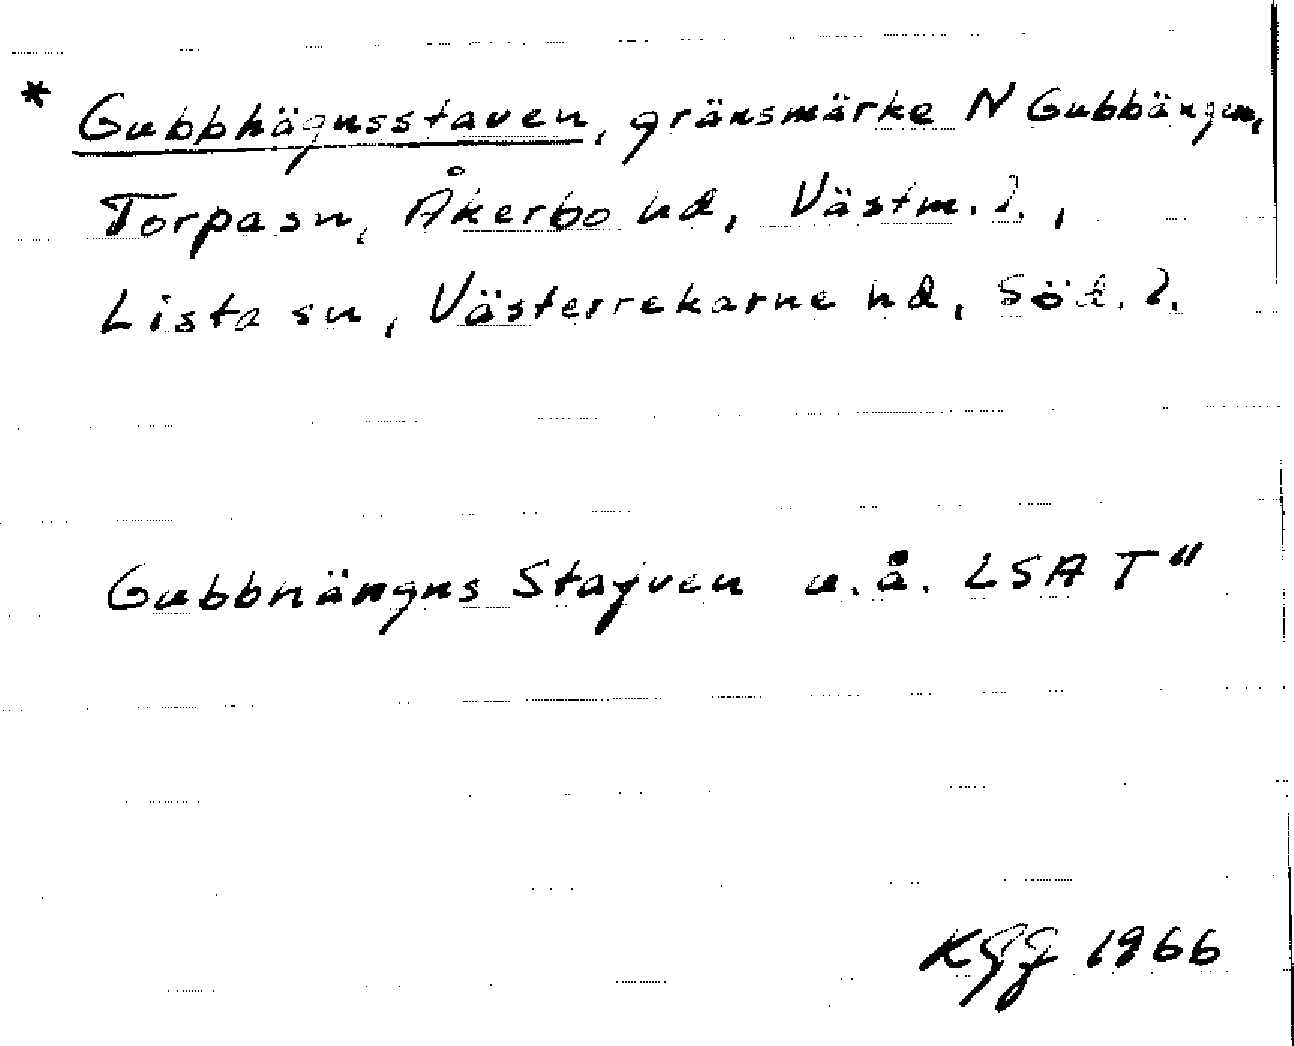 * Gubbhägnsstaven, gränsmärke N Gubbängen,
Torpa sn, Åkerbo hd, Västm. l.,
Lista sn, Västerrekarne hd, Söd. l.
Gubbhängns Stayven u.å. LSA T"
1966